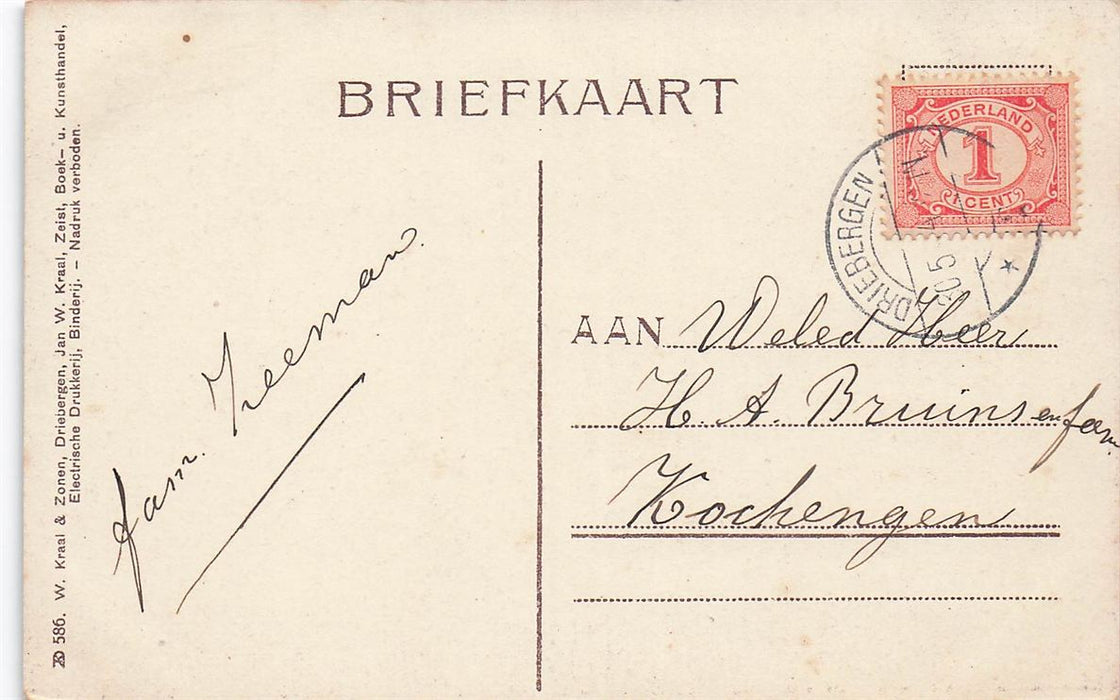 BRIEFKAART
NEDERLAND
1
1 CENT
DRIEBERGEN
AAN Weled Heer
H. A. Bruins en fam
Kochengen
fam. Zeeman.
586. W. Kraal & Zonen, Driebergen, Jan W. Kraal, Zeist, Boek- u. Kunsthandel,
Electrische Drukkerij, Binderij. – Nadruk verboden.